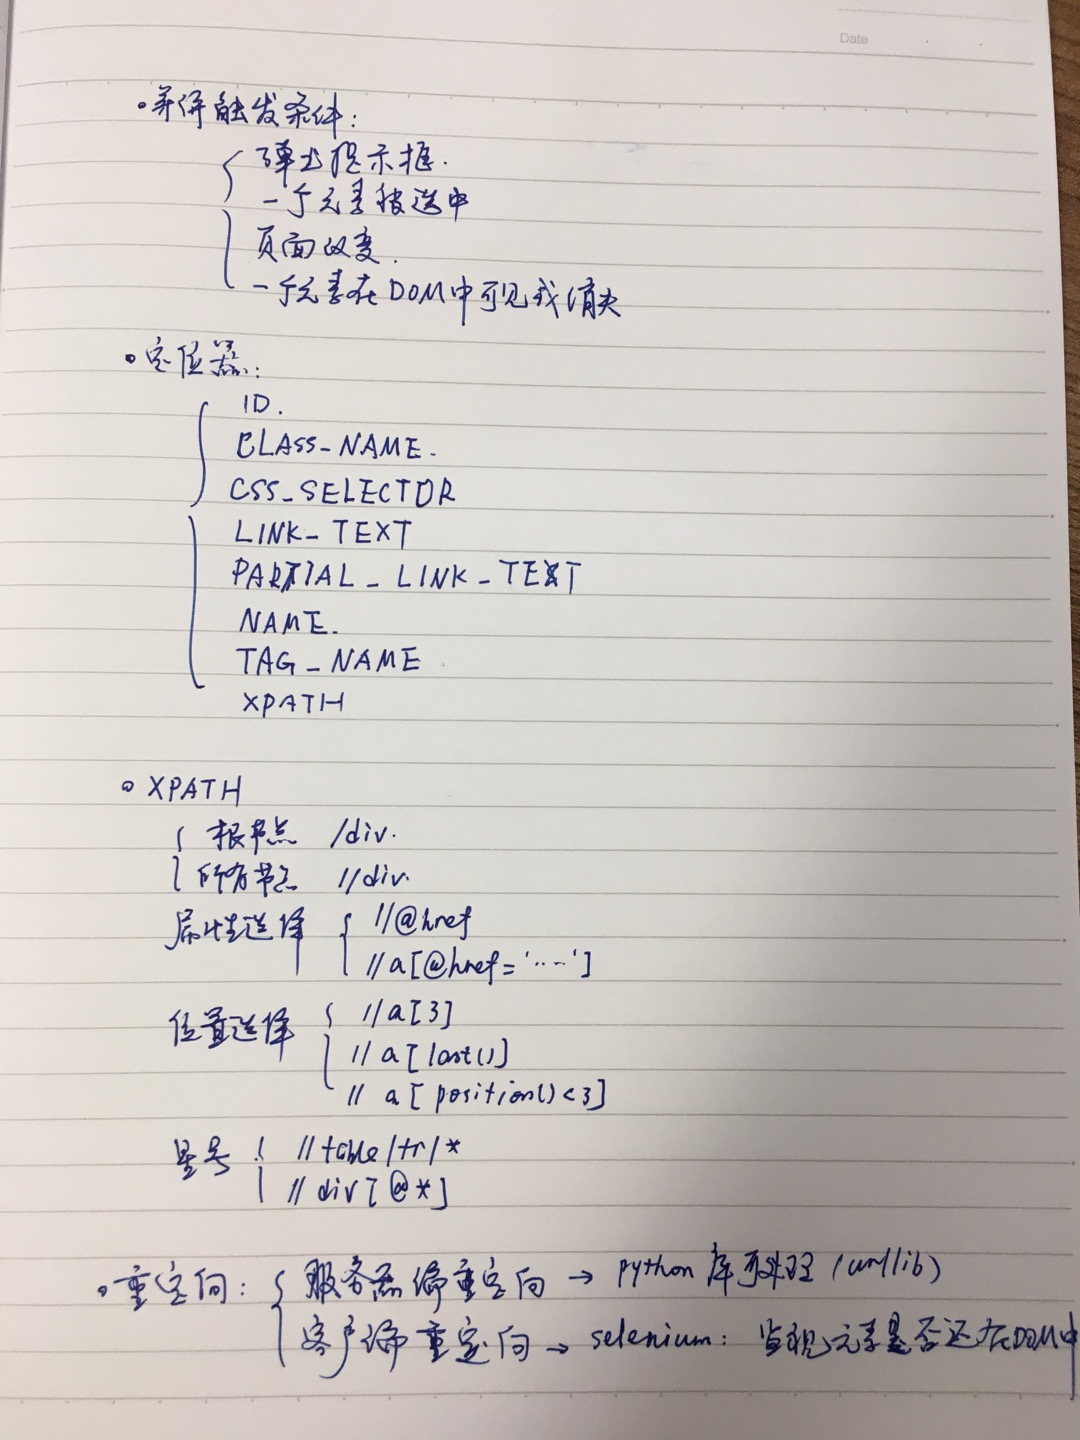 Date
触发条件:
弹出提示框.
一个元素被选中
页面改变.
一个元素在DOM中可见或消失
定位器:
ID.
CLASS_NAME.
CSS_SELECTOR
LINK_TEXT
PARTIAL_LINK_TEXT
NAME.
TAG_NAME
XPATH
XPATH
根节点 /div.
所有节点 //div.
属性选择 //@href
//a[@href='....']
位置选择 //a[3]
//a[last()]
//a[position()<3]
星号 //table/tr/*
//div[@*]
重定向: 服务器端重定向 → python库可处理 (urllib)
客户端重定向 → selenium: 监视元素是否还在DOM中